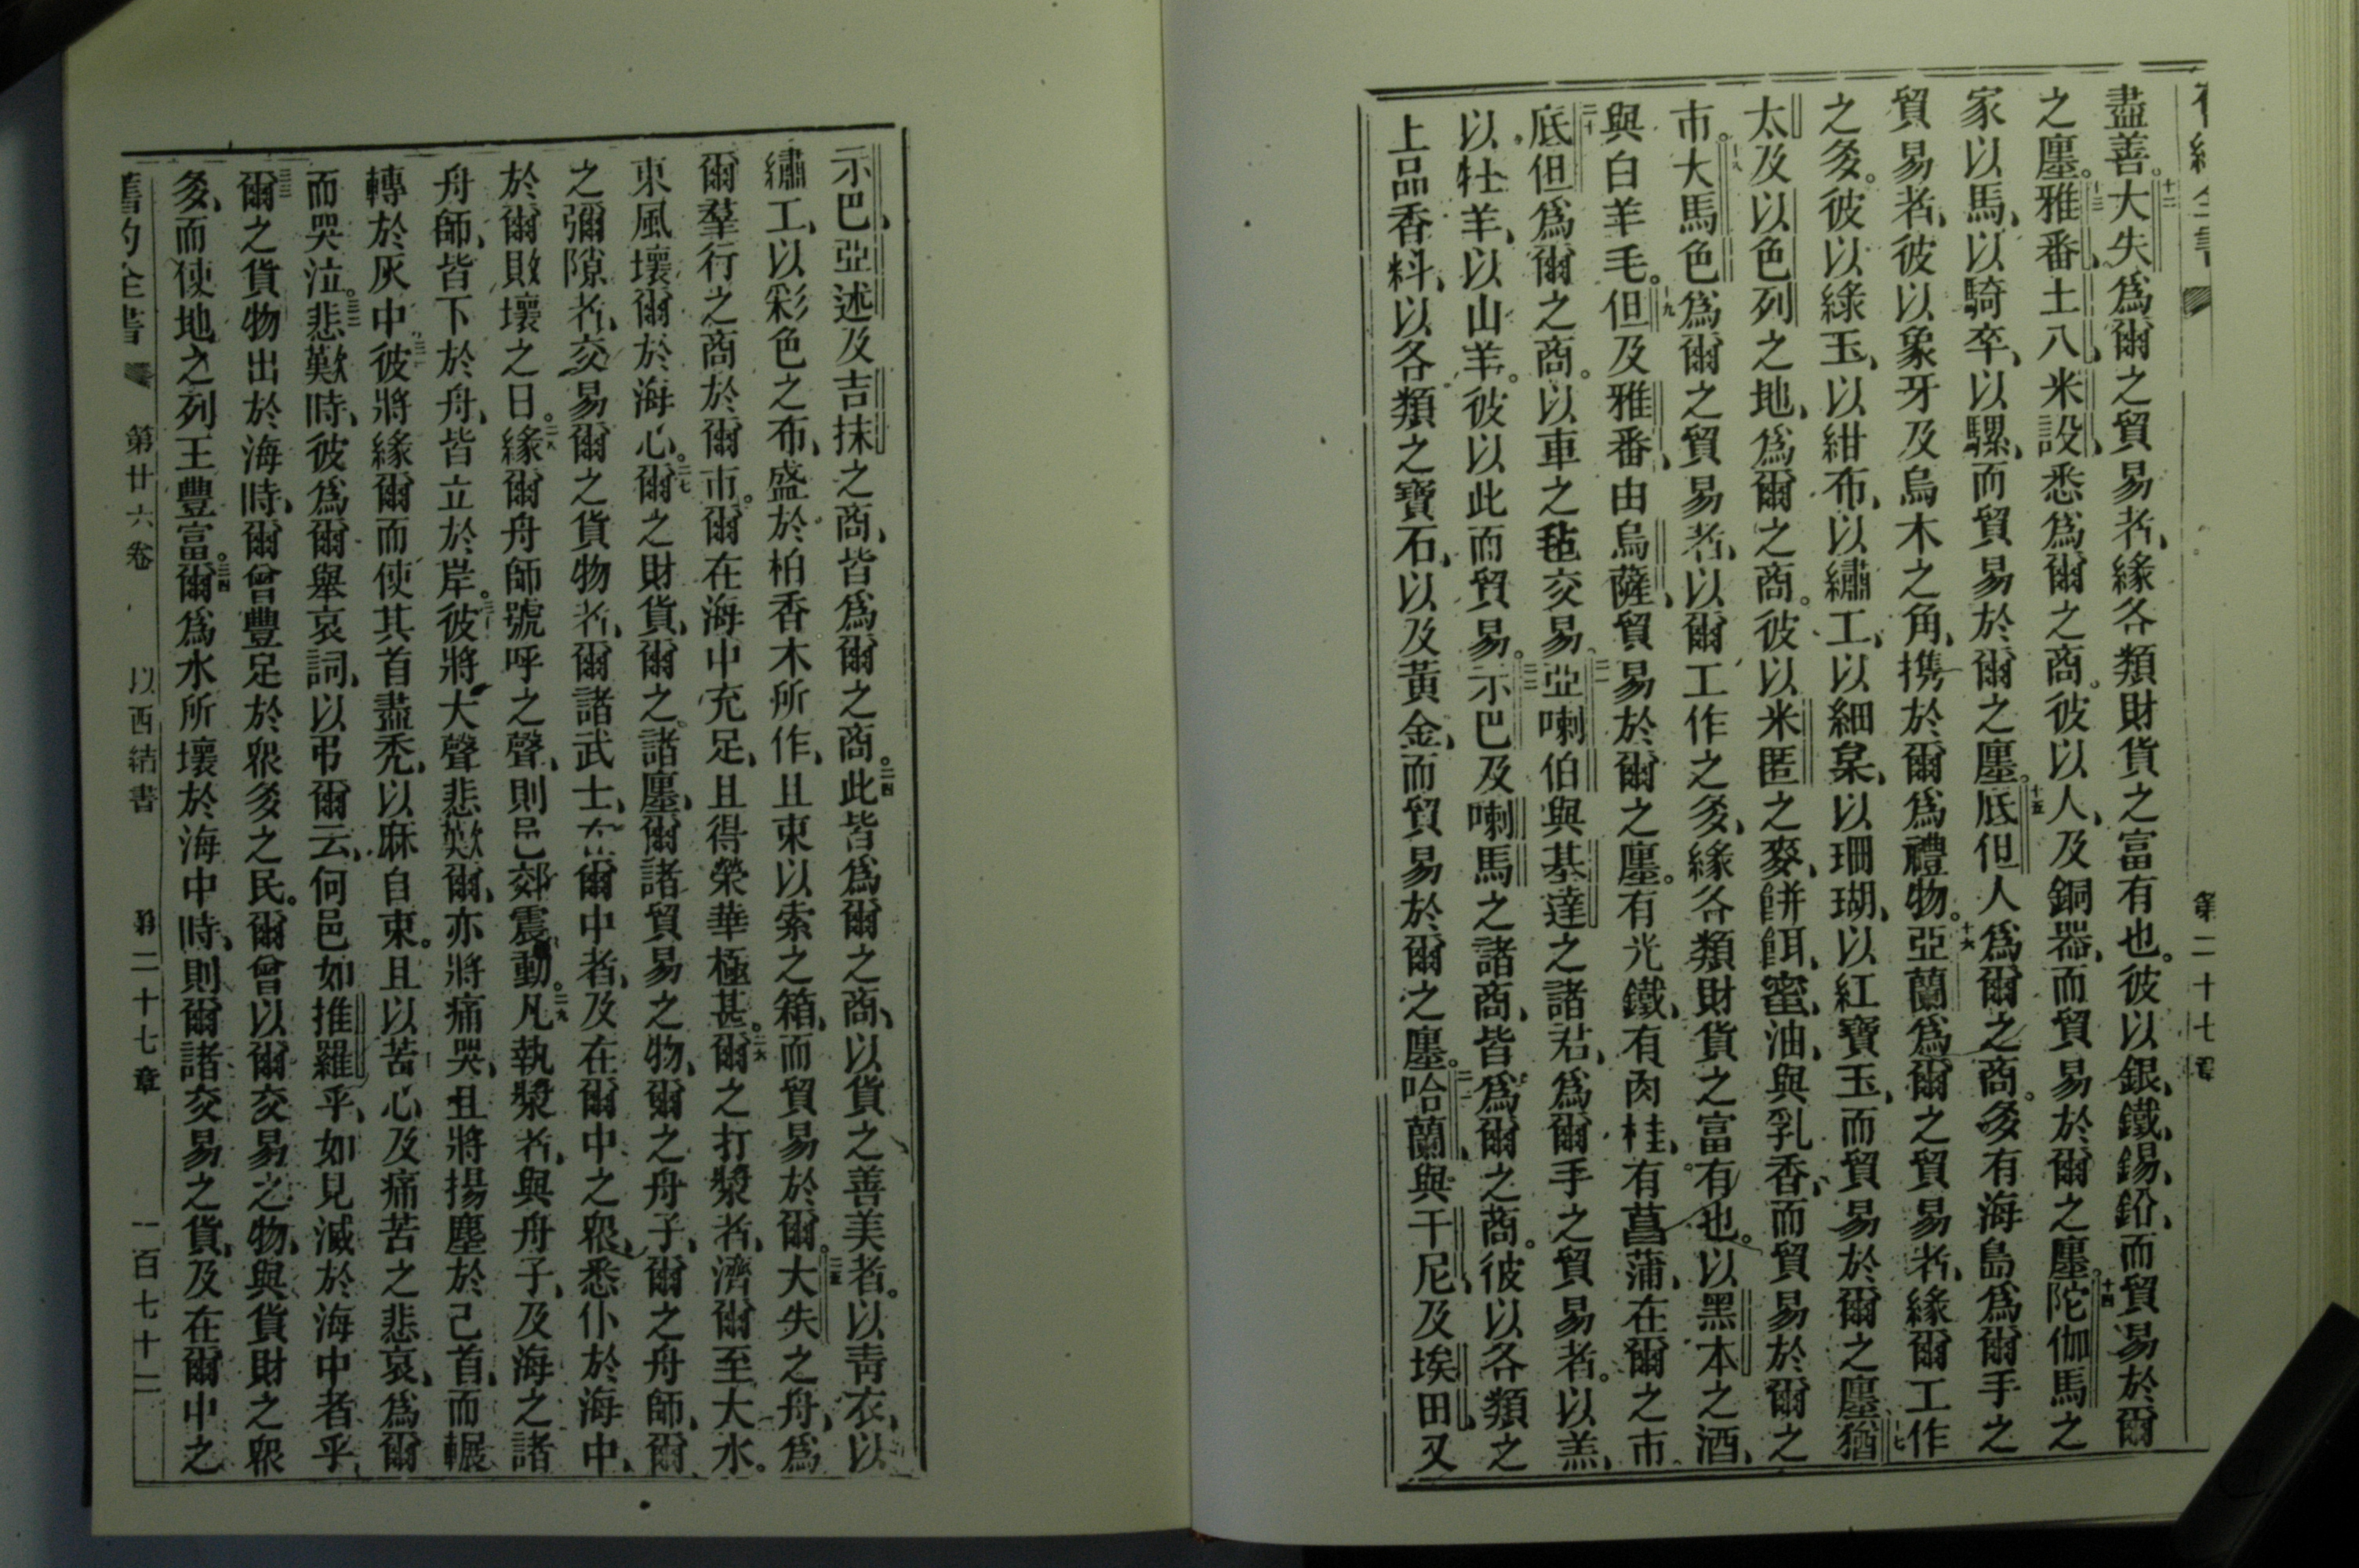 第二十七章
盡善。十二大失爲爾之貿易者、緣各類財貨之富有也。彼以銀、鐵、錫、鉛、而貿易於爾
之廛。十三雅番、土八、米設、悉爲爾之商。彼以人、及銅器、而貿易於爾之廛。十四陀伽馬之
家以馬、以騎卒、以騾、而貿易於爾之廛。十五底但人爲爾之商。多有海島爲爾手之
貿易者、彼以象牙及烏木之角、携於爾爲禮物。十六亞蘭爲爾之貿易者、緣爾工作
之多。彼以綠玉、以紺布、以繡工、以細枲、以珊瑚、以紅寶玉、而貿易於爾之廛。十七猶
太及以色列之地、爲爾之商。彼以米匿之麥、餅餌、蜜、油、與乳香、而貿易於爾之
市。十八大馬色爲爾之貿易者、以爾工作之多、緣各類財貨之富有也。以黑本之酒、
與白羊毛。十九但及雅番、由烏薩、貿易於爾之廛。有光鐵、有肉桂、有菖蒲、在爾之市。
二十底但爲爾之商。以車之毡交易。二一亞喇伯與基達之諸君、爲爾手之貿易者。以羔、
以牡羊、以山羊。彼以此而貿易。二二示巴及喇馬之諸商、皆爲爾之商。彼以各類之
上品香料、以各類之寶石、以及黃金、而貿易於爾之廛。二三哈蘭、與干尼、及埃田、又
示巴、亞述及吉抹之商、皆爲爾之商。二四此皆爲爾之商、以貨之善美者。以青衣、以
繡工、以彩色之布、盛於柏香木所作、且束以索之箱、而貿易於爾。二五大失之舟、爲
爾羣行之商於爾市。爾在海中充足、且得榮華極甚。二六爾之打槳者、濟爾至大水。
東風壞爾於海心。二七爾之財貨、爾之諸廛、爾諸貿易之物、爾之舟子、爾之舟師、爾
之彌隙者、交易爾之貨物者、爾諸武士、爾中者、及在爾中之衆、悉仆於海中、
於爾敗壞之日。二八緣爾舟師號呼之聲、則邑郊震動。二九凡執槳者、與舟子、及海之諸
舟師、皆下於舟、皆立於岸。三十彼將大聲悲歎爾、亦將痛哭、且將揚塵於己首、而輾
轉於灰中。三一彼將緣爾而使其首盡禿、以麻自束。且以苦心及痛苦之悲哀、爲爾
而哭泣。三二悲歎時、彼爲爾舉哀詞、以弔爾云、何邑如推羅乎、如見滅於海中者乎、
三三爾之貨物出於海時、爾曾豐足於衆多之民。爾曾以爾交易之物、與貨財之衆
多、而使地之列王豐富。三四爾爲水所壞於海中時、則爾諸交易之貨、及在爾中之
舊約全書 第廿六卷 以西結書 第二十七章 一百七十二